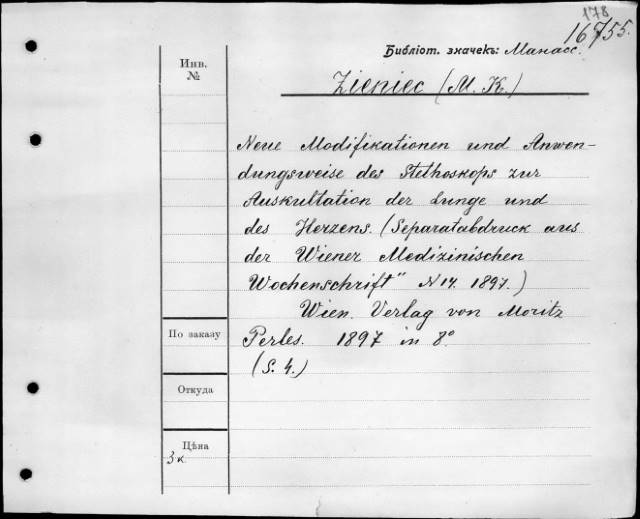 178
16755.
Библіот. значекъ: Манасс.
Инв.
№
Zieniec (M. K.)
Neue Modifikationen und Anwen-
dungsweise des Stethoskops zur
Auskultation der Lunge und
des Herzens. (Separatabdruck aus
der Wiener Medizinischen
Wochenschrift" N 14. 1897.)
Wien. Verlag von Moritz
Perles. 1897 in 8°
(S. 4.)
По заказу
Откуда
Цѣна
3 к.